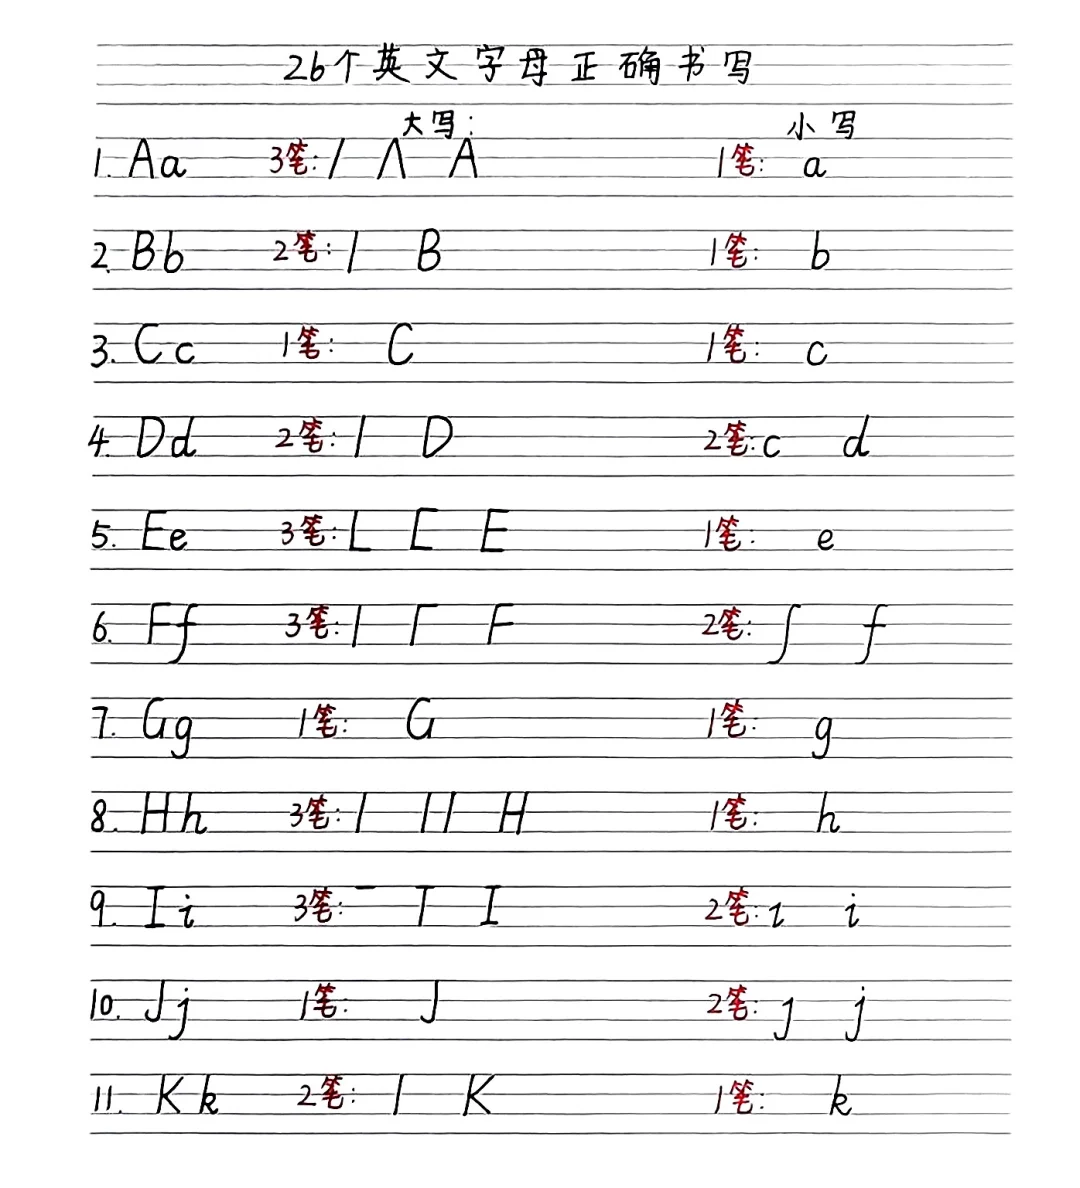 26个英文字母正确书写
大写: 小写
1. Aa 3笔: / Λ A 1笔: a
2. Bb 2笔: l B 1笔: b
3. Cc 1笔: C 1笔: c
4. Dd 2笔: l D 2笔: c d
5. Ee 3笔: L [ E 1笔: e
6. Ff 3笔: l Γ F 2笔: ʃ f
7. Gg 1笔: G 1笔: g
8. Hh 3笔: l ll H 1笔: h
9. Ii 3笔: - T I 2笔: ı i
10. Jj 1笔: J 2笔: ȷ j
11. Kk 2笔: l K 1笔: k